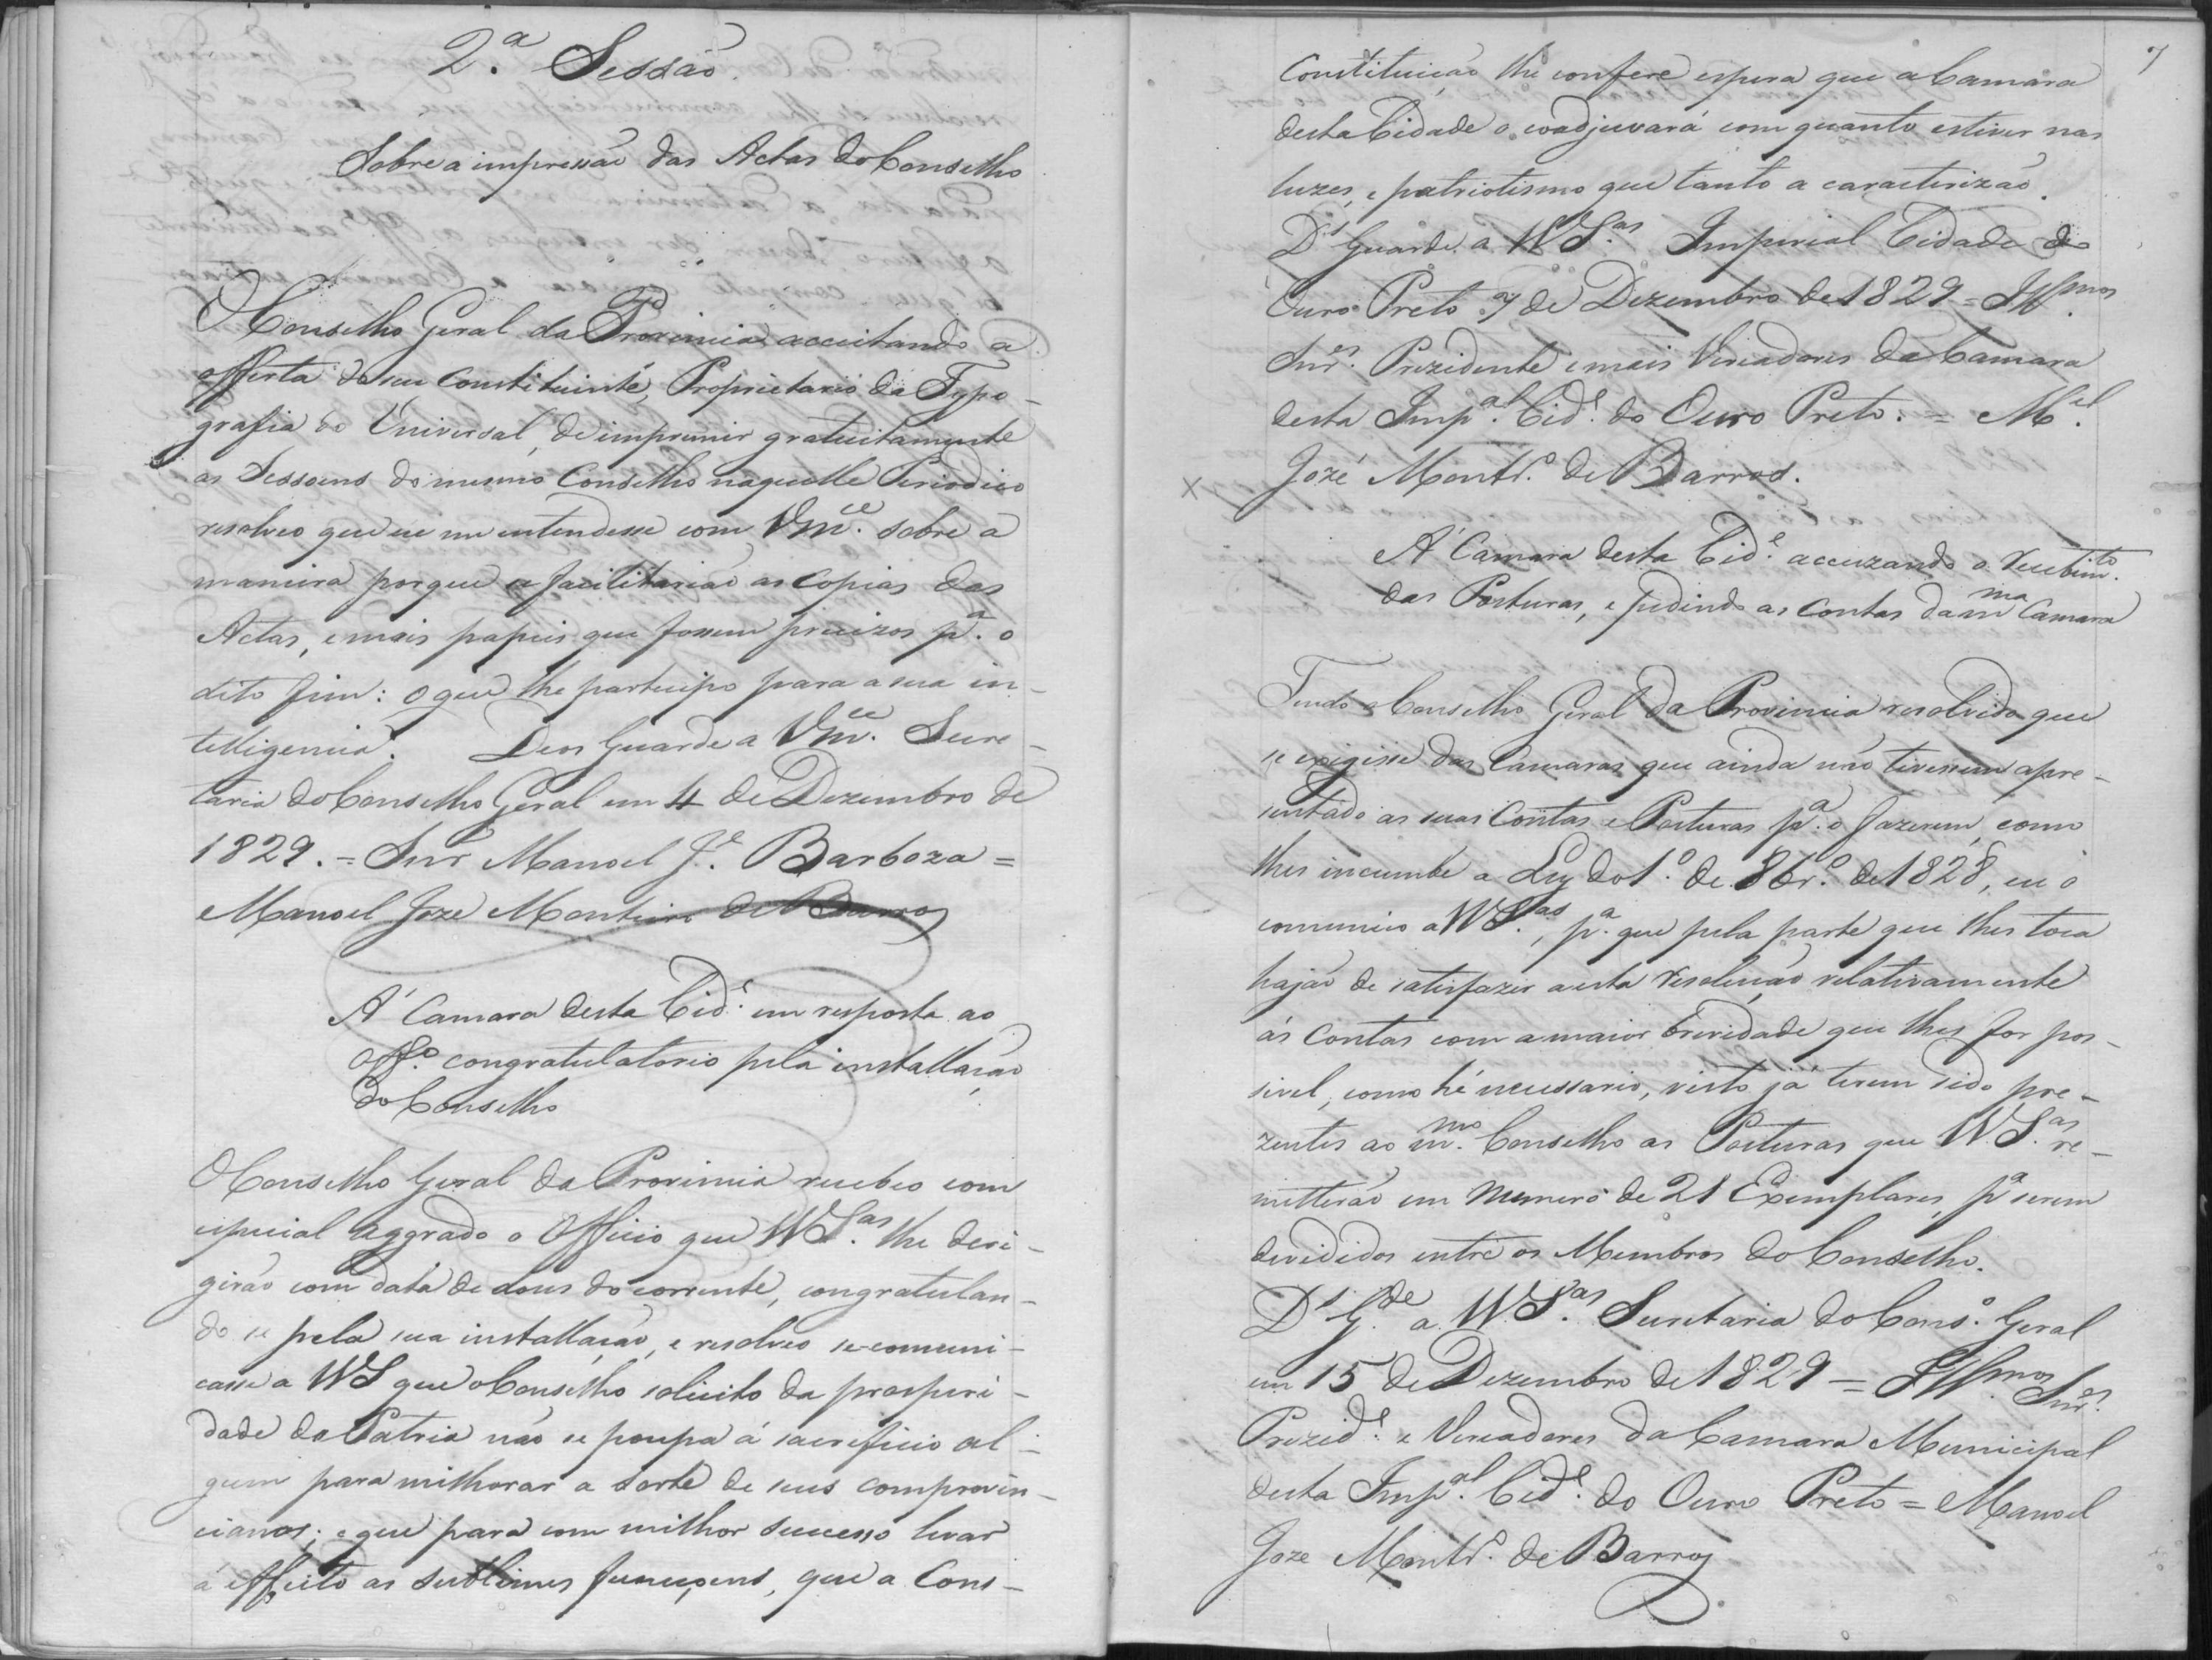 2.ª Sessão.
Sobre a impressão das Actas do Conselho
O Conselho Geral da Provincia acceitando a
offerta do seu Constituinte, Proprietario da Typo-
grafia do Universal, de imprimir gratuitamente
as Sessoens do mesmo Conselho naquelle Periodico
resolveo que eu me entendesse com Vm.ce sobre a
maneira porque se facilitarião as Copias das
Actas, e mais papeis que fossem precizos p.ª o
dito fim: o que lhe participo para a sua in-
telligencia. Deos Guarde a Vm.ce Secre-
taria do Conselho Geral em 4 de Dezembro de
1829. = Snr Manoel J.e Barboza =
Manoel Joze Monteiro de Barros
Á Camara desta Cid.e em resposta ao
Off.o congratulatorio pela installação
do Conselho
O Conselho Geral da Provincia recebeo com
especial aggrado o Officio que VVS.as lhe deri-
girão com data de dous do corrente, congratulan-
do se pela sua installação, e resolveo se comuni-
casse a VVS que o Conselho solicito da prosperi-
dade da Patria não se poupa á sacreficio al-
gum para milhorar a sorte de seus comprovin-
cianos; e que para com milhor successo levar
á effeito as sublimes funcçoens, que a Cons-
7
Constituição lhe confere espera que a Camara
desta Cidade o coadjuvará com quanto estiver nas
luzes, e patriotismo que tanto a caracterizão.
D.s Guarde a VVS.as Imperial Cidade do
Ouro Preto 7 de Dezembro de 1829 = Ill.mos
Snr.es Prezidente e mais Vereadores da Camara
desta Imp.al Cid.e do Ouro Preto. = M.el
José Montr.o de Barros.
X
Á Camara desta Cid.e accuzando o recebim.to
das Posturas, e pedindo as Contas da m.ma Camara
Tendo o Conselho Geral da Provincia resolvido que
se exigisse das Camaras que ainda não tivessem apre-
sentado as suas Contas e Posturas p.ª o fazerem, como
lhes incumbe a Ley do 1.º de 8br.º de 1828, eu o
comunico a VVS.as, p.ª que pela parte que lhes toca
hajão de satisfazer a esta resolução relativamente
ás Contas com a maior brevidade que lhes for pos-
sivel, como hé necessario, visto já terem sido pre-
zentes ao m.mo Conselho as Posturas que VVS.as re-
metterão em numero de 21 Exemplares, p.ª serem
devididos entre os Membros do Conselho.
D.s G.de a VVS.as Secretaria do Cons.o Geral
em 15 de Dezembro de 1829 = Ill.mos Snr.es
Prezid.e e Vereadores da Camara Municipal
desta Imp.al Cid.e do Ouro Preto = Manoel
Joze Montr.o de Barros